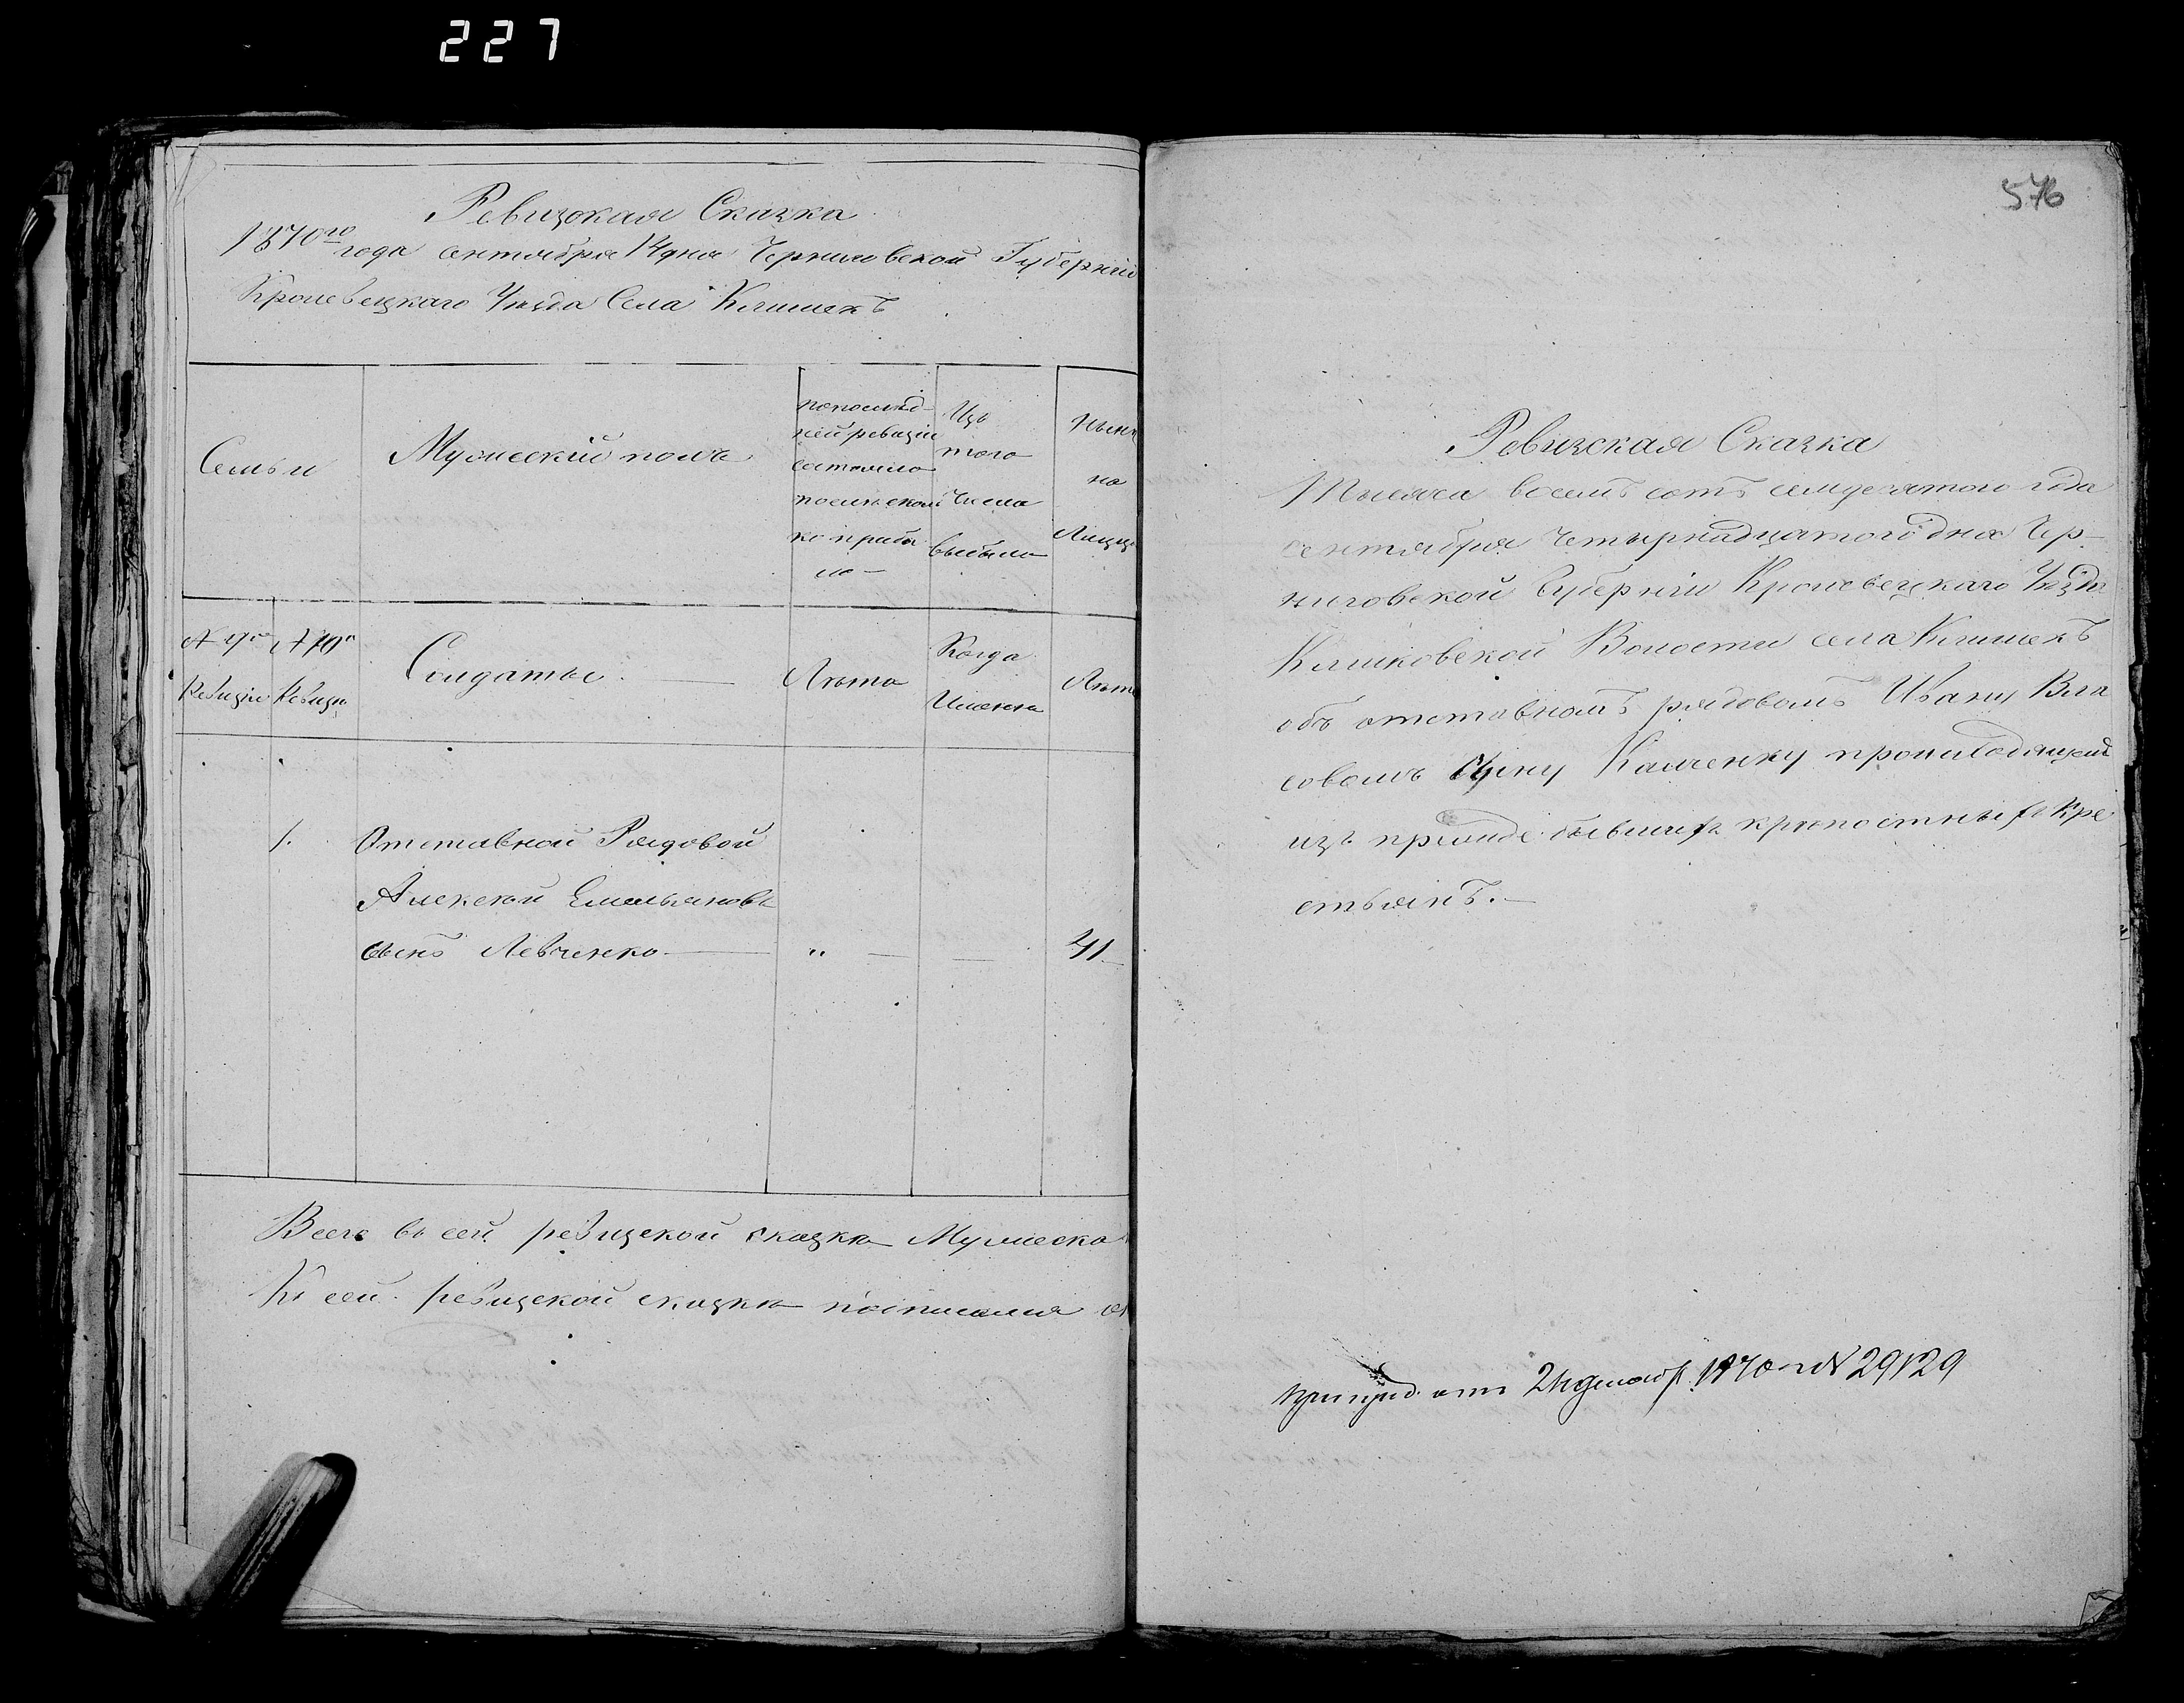 227
Ревизская Сказка
1870го года сентября 14 дня Черниговской Губерніи
Кролевецкаго Уѣзда Села Клишекъ
Семьи
Мужескій полъ
по послѣд-
ней ревизіи
состояло
Изъ
того
числа
выбыло
Нынѣ
на
Лицо
№ 9й
Ревизіи
№ 10й
Ревизіи
Солдаты
Лѣта
Когда
Именно
Лѣта
1.
Отставной Рядовой
Алексѣй Емельяновъ
сынъ Левченко — " — 41
Всего въ сей ревизской сказкѣ Мужеска
Къ сей ревизской сказкѣ
576
Ревизская Сказка
Тысяча восемь сотъ семидесятого года
сентября четырнадцатого дня Чер-
ниговской Губерніи Кролевецкаго Уѣзда
Клишковской Волости села Клишекъ
объ отставномъ рядовомъ Ивану Вла
совомъ сыну Калченку
изъ прежде бывшихъ крѣпостныхъ кре
стьянъ.
при 24 декабр. 1870 г. № 29129